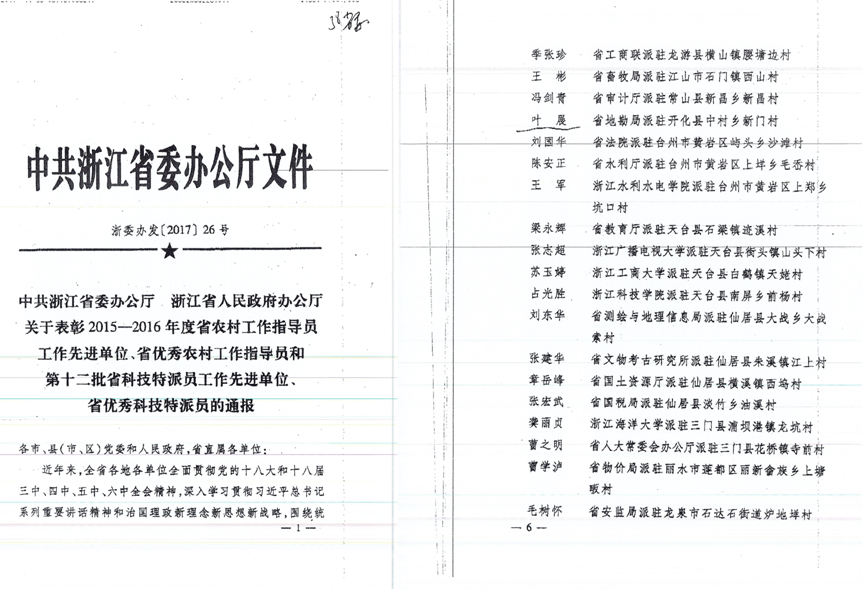 中共浙江省委办公厅文件
浙委办发〔2017〕26号
中共浙江省委办公厅 浙江省人民政府办公厅
关于表彰2015—2016年度省农村工作指导员
工作先进单位、省优秀农村工作指导员和
第十二批省科技特派员工作先进单位、
省优秀科技特派员的通报
各市、县(市、区)党委和人民政府,省直属各单位:
近年来,全省各地各单位全面贯彻党的十八大和十八届
三中、四中、五中、六中全会精神,深入学习贯彻习近平总书记
系列重要讲话精神和治国理政新理念新思想新战略,围绕统
— 1 —
季张珍 省工商联派驻龙游县横山镇腰塘边村
王 彬 省畜牧局派驻江山市石门镇西山村
冯剑青 省审计厅派驻常山县新昌乡新昌村
叶 晨 省地勘局派驻开化县中村乡新门村
刘国华 省法院派驻台州市黄岩区屿头乡沙滩村
陈安正 省水利厅派驻台州市黄岩区上垟乡毛岙村
王 军 浙江水利水电学院派驻台州市黄岩区上郑乡
坑口村
梁永辉 省教育厅派驻天台县石梁镇迹溪村
张志超 浙江广播电视大学派驻天台县街头镇山头下村
苏玉婷 浙江工商大学派驻天台县白鹤镇天姥村
占光胜 浙江科技学院派驻天台县南屏乡前杨村
刘东华 省测绘与地理信息局派驻仙居县大战乡大战
索村
张建华 省文物考古研究所派驻仙居县朱溪镇江上村
章岳峰 省国土资源厅派驻仙居县横溪镇西坞村
张宏武 省国税局派驻仙居县淡竹乡油溪村
龚雨贞 浙江海洋大学派驻三门县浦坝港镇龙坑村
曹之明 省人大常委会办公厅派驻三门县花桥镇寺前村
曹学泸 省物价局派驻丽水市莲都区丽新畲族乡上塘
畈村
毛树怀 省安监局派驻龙泉市石达石街道炉地垟村
— 6 —